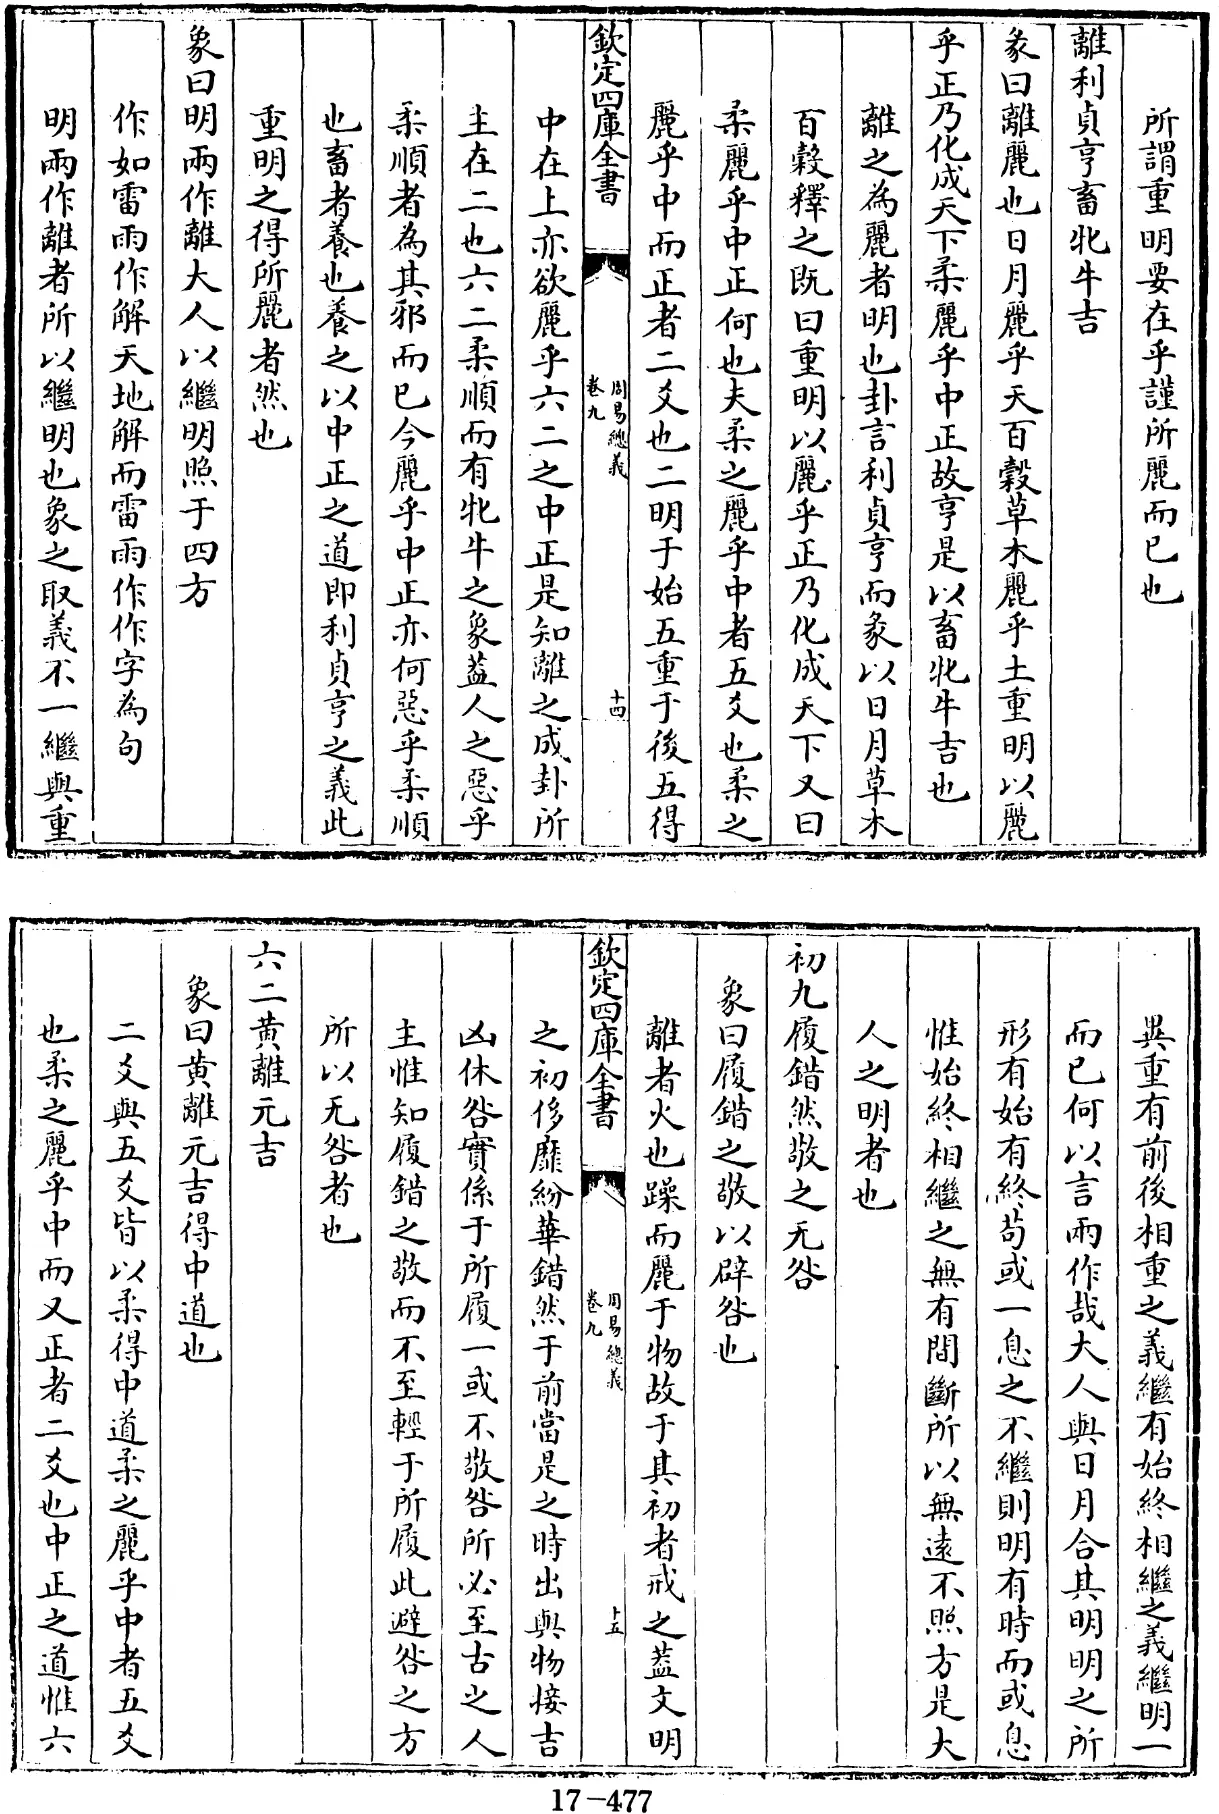 所謂重明要在乎謹所麗而已也
離利貞亨畜牝牛吉
彖曰離麗也日月麗乎天百穀草木麗乎土重明以麗
乎正乃化成天下柔麗乎中正故亨是以畜牝牛吉也
離之為麗者明也卦言利貞亨而彖以日月草木
百穀釋之既曰重明以麗乎正乃化成天下又曰
柔麗乎中正何也夫柔之麗乎中者五爻也柔之
麗乎中而正者二爻也二明于始五重于後五得
欽定四庫全書
周易總義
卷九
十四
中在上亦欲麗乎六二之中正是知離之成卦所
主在二也六二柔順而有牝牛之象蓋人之惡乎
柔順者為其邪而已今麗乎中正亦何惡乎柔順
也畜者養也養之以中正之道即利貞亨之義此
重明之得所麗者然也
象曰明兩作離大人以繼明照于四方
作如雷雨作解天地解而雷雨作作字為句
明兩作離者所以繼明也象之取義不一繼與重
異重有前後相重之義繼有始終相繼之義繼明一
而已何以言兩作哉大人與日月合其明明之所
形有始有終苟或一息之不繼則明有時而或息
惟始終相繼之無有間斷所以無遠不照方是大
人之明者也
初九履錯然敬之无咎
象曰履錯之敬以辟咎也
離者火也躁而麗于物故于其初者戒之蓋文明
欽定四庫全書
周易總義
卷九
十五
之初侈靡紛華錯然于前當是之時出與物接吉
凶休咎實係于所履一或不敬咎所必至古之人
主惟知履錯之敬而不至輕于所履此避咎之方
所以无咎者也
六二黃離元吉
象曰黃離元吉得中道也
二爻與五爻皆以柔得中道柔之麗乎中者五爻
也柔之麗乎中而又正者二爻也中正之道惟六
17-477